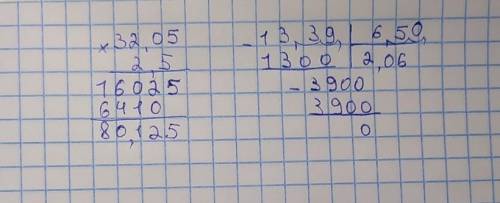 ×32,05
2,5
16025
6410
80,125
-13,39, 6,50,
1300 2,06
-3900
3900
0